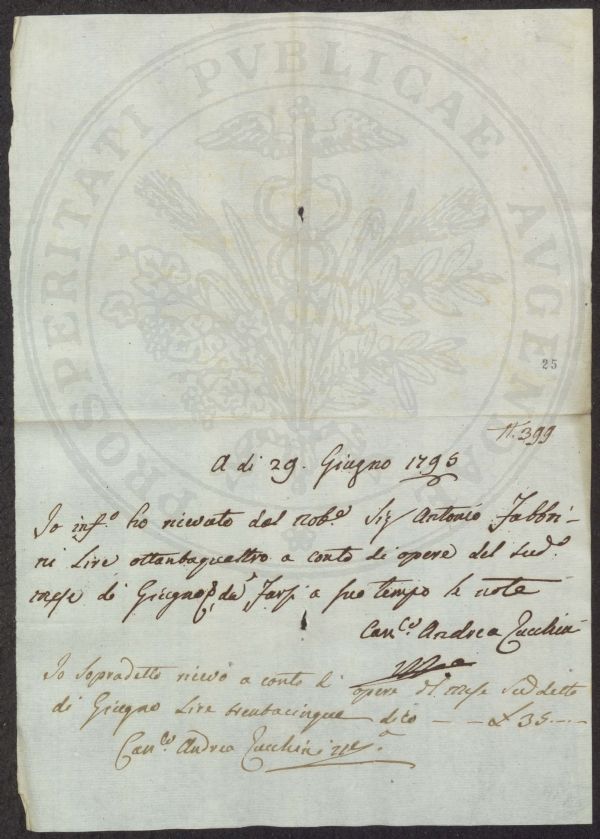 PROSPERITATI PVBLICAE AVGENDAE
25
N. 399
A di 29. Giugno 1795
Io inf.o ho ricevuto dal Nob.e Sig Antonio Fabbri-
ni Lire ottantaquattro a conto di opere del sud.o
mese di Giugno da Farsi a suo tempo le note
Can.co Andrea Zucchini
Io Sopradetto ricevo a conto di opere del mese suddetto
di Giugno Lire trentacinque dico - - - £ 35 - -
Can.co Andrea Zucchini